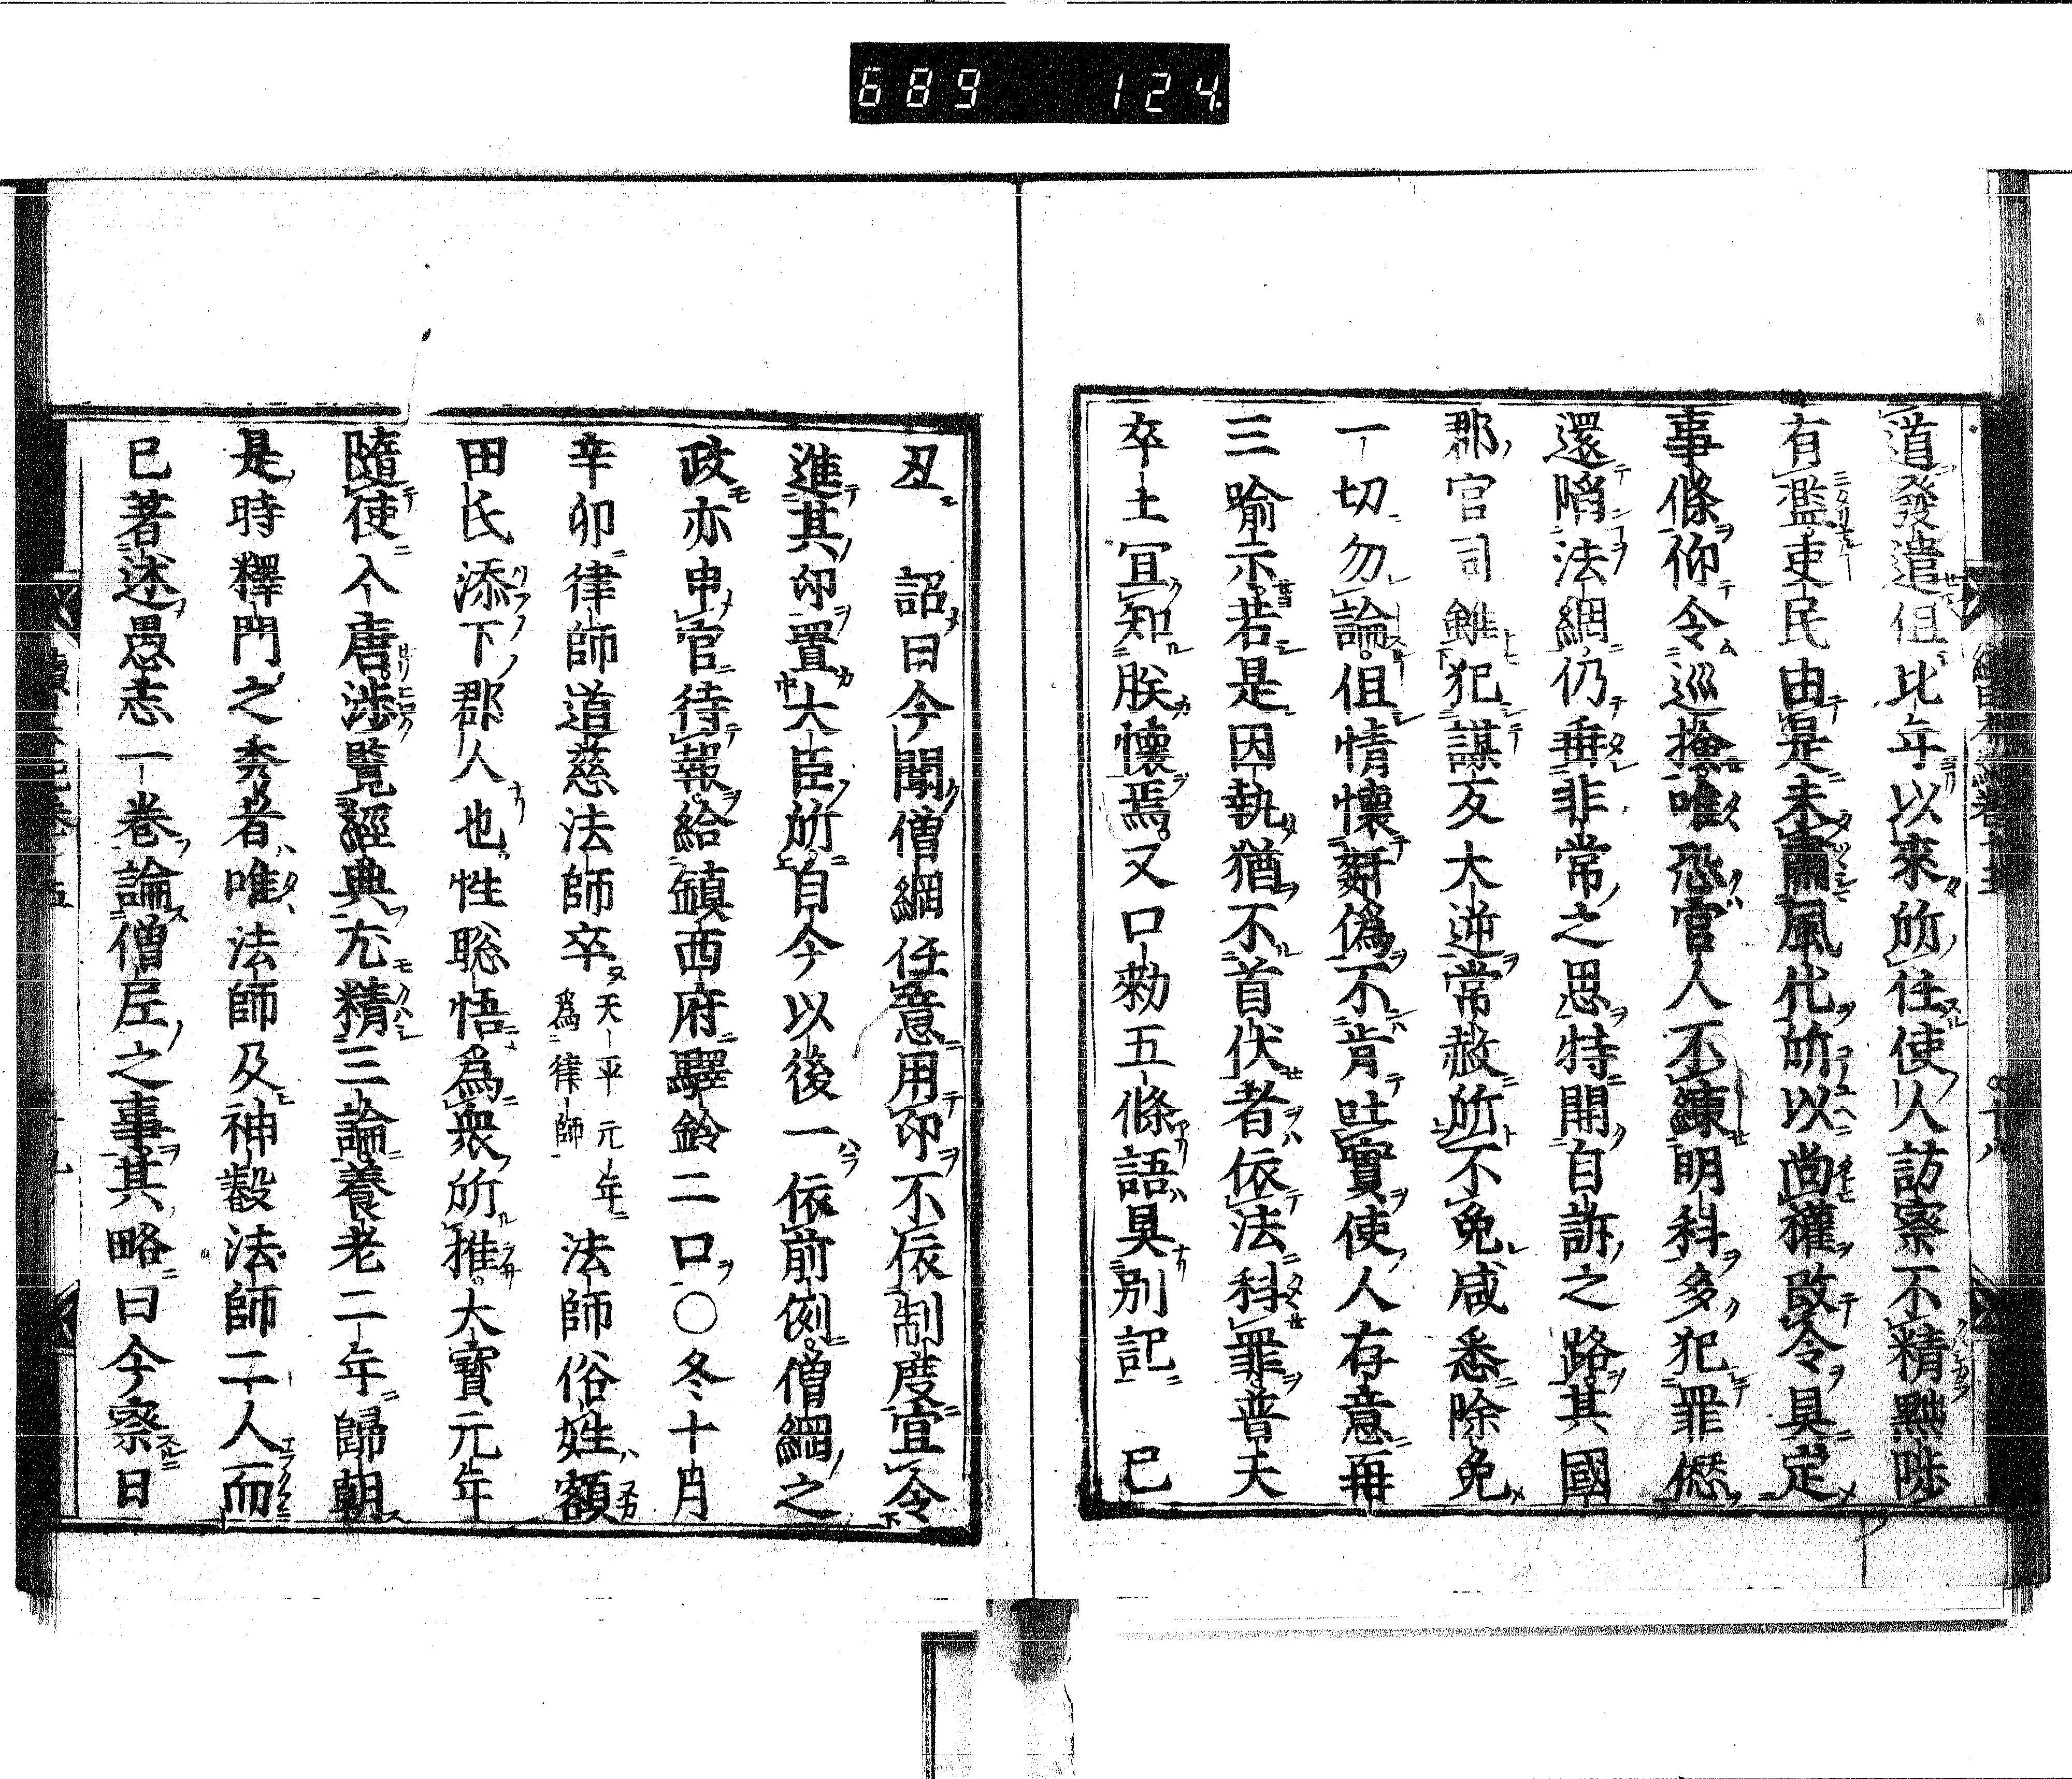 689 124
道發遣但比年以來所任使人訪察不精黜陟
有濫吏民由是未肅風化所以尚擁故令具定
事條仰令巡撿唯恐官人不練明科多犯罪愆
還陷法網仍垂非常之思特開自訴之路其國
郡官司雖犯謀反大逆常赦所不免咸悉除免
一切勿論但情懷姧偽不肯吐實使人存意再
三喻示若是因執猶不首伏者依法科罪普天
卒土宜知朕懷焉又口勅五條語具別記　巳
丑　詔曰今聞僧綱任意用印不依制度宜令
進其印置大臣所自今以後一依前例僧綱之
政亦申官待報給鎮西府驛鈴二口〇冬十月
辛卯律師道慈法師卒天平元年爲律師　法師俗姓額
田氏添下郡人也性聡悟爲衆所推大寶元年
隨使入唐渉覽經典尤精三論養老二年歸朝
是時釋門之秀者唯法師及神叡法師二人而
已著述愚志一巻論僧尼之事其略曰今察日